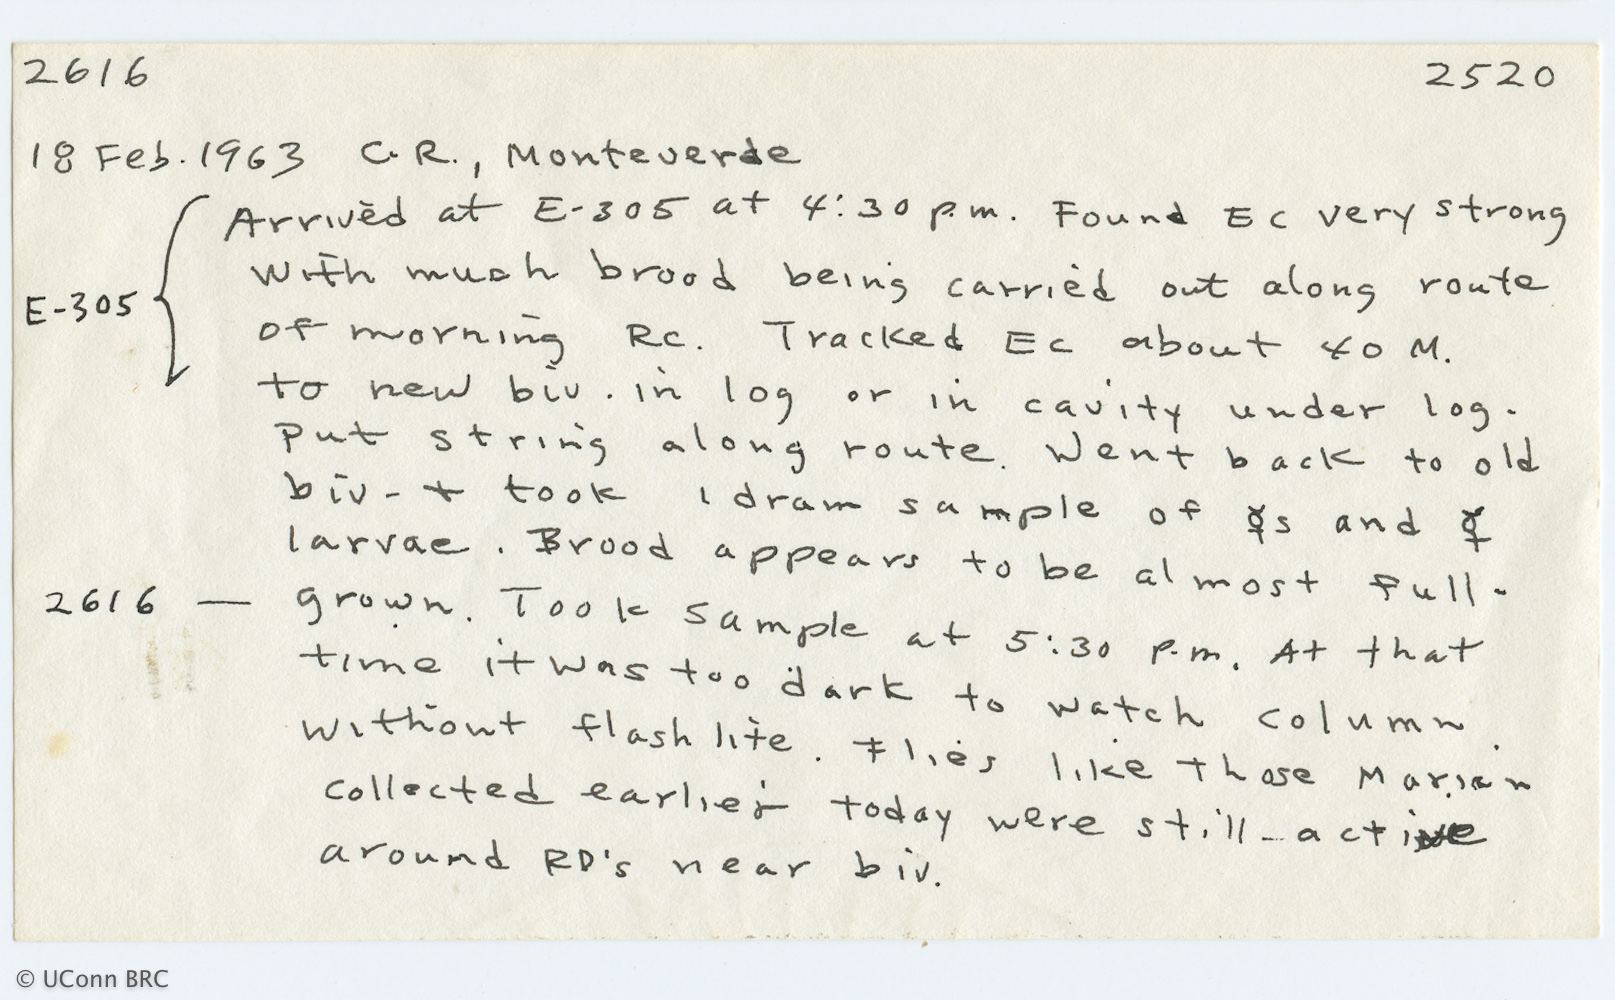 2616 2520
18 Feb. 1963 C.R., Monteverde
Arrived at E-305 at 4:30 p.m. Found Ec very strong
with much brood being carried out along route
E-305
of morning Rc. Tracked Ec about 40 M.
to new biv. in log or in cavity under log.
Put string along route. Went back to old
biv- + took 1 dram sample of ☿s and ☿
larvae. Brood appears to be almost full-
2616 — grown. Took sample at 5:30 p.m. At that
time it was too dark to watch column
without flashlite. Flies like those Marian
collected earlier today were still active
around RD's near biv.
© UConn BRC